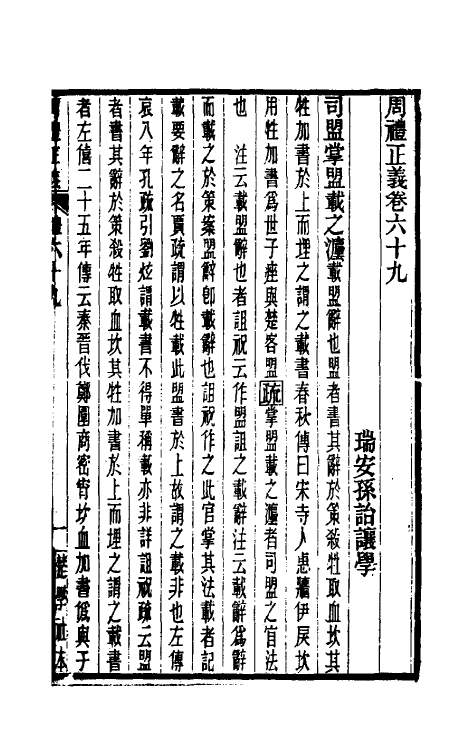 周禮正義卷六十九
瑞安孫詒讓學
司盟掌盟載之灋載盟辭也盟者書其辭於策殺牲取血坎其
牲加書於上而埋之謂之載書春秋傳曰宋寺人惠牆伊戾坎
用牲加書爲世子痤與楚客盟疏掌盟載之灋者司盟之官法
也　注云載盟辭也者詛祝云作盟詛之載辭注云載辭爲辭
而載之於策案盟辭卽載辭也詛祝作之此官掌其法載者記
載要辭之名賈疏謂以牲載此盟書於上故謂之載非也左傳
哀八年孔疏引劉炫謂載書不得單稱載亦非詳詛祝疏云盟
者書其辭於策殺牲取血坎其牲加書於上而埋之謂之載書
者左僖二十五年傳云秦晉伐鄀圍商密宵坎血加書僞與子
周禮正義 卷六十九
一